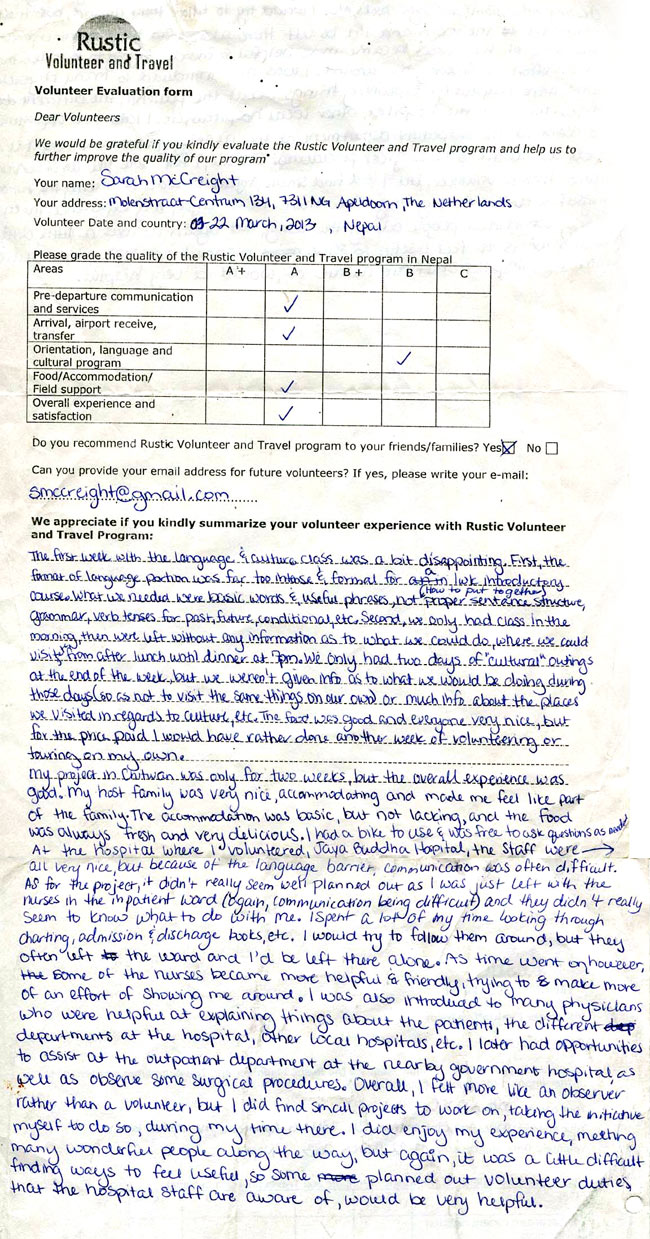 Rustic
Volunteer and Travel
Volunteer Evaluation form
Dear Volunteers
We would be grateful if you kindly evaluate the Rustic Volunteer and Travel program and help us to
further improve the quality of our program"
Your name: Sarah McCreight
Your address: Molenstraat-Centrum 134, 7311 NG Apeldoorn, The Netherlands
Volunteer Date and country: 09-22 March, 2013, Nepal
Please grade the quality of the Rustic Volunteer and Travel program in Nepal
Areas A+ A B+ B C
Pre-departure communication
and services ✓
Arrival, airport receive,
transfer ✓
Orientation, language and
cultural program ✓
Food/Accommodation/
Field support ✓
Overall experience and
satisfaction ✓
Do you recommend Rustic Volunteer and Travel program to your friends/families? Yes ☒ No ☐
Can you provide your email address for future volunteers? If yes, please write your e-mail:
smccreight@gmail.com
We appreciate if you kindly summarize your volunteer experience with Rustic Volunteer
and Travel Program:
The first week with the language & culture class was a bit disappointing. First, the
format of language portion was far too intense & formal for a 1wk introductory
course. What we needed were basic words & useful phrases, (how to put together) not proper sentence structure,
grammar, verb tenses for past, future, conditional, etc. Second, we only had class in the
morning, then were left without any information as to what we could do, where we could
visit, from after lunch until dinner at 7pm. We only had two days of "cultural" outings
at the end of the week, but we weren't given info as to what we would be doing during
those days (so as not to visit the same things on our own) or much info about the places
we visited in regards to culture, etc. The food was good and everyone very nice, but
for the price paid I would have rather done another week of volunteering or
touring on my own.
My project in Chitwan was only for two weeks, but the overall experience was
good. My host family was very nice, accommodating and made me feel like part
of the family. The accommodation was basic, but not lacking, and the food
was always fresh and very delicious. I had a bike to use & was free to ask questions as needed
At the hospital where I volunteered, Jaya Buddha Hopital, the staff were →
all very nice, but because of the language barrier, communication was often difficult.
As for the project, it didn't really seem well planned out as I was just left with the
nurses in the inpatient ward (again, communication being difficult) and they didn't really
seem to know what to do with me. I spent a lot of my time looking through
charting, admission & discharge books, etc. I would try to follow them around, but they
often left the ward and I'd be left there alone. As time went on, however,
some of the nurses became more helpful & friendly, trying to & make more
of an effort of showing me around. I was also introduced to many physicians
who were helpful at explaining things about the patients, the different
departments at the hospital, other local hospitals, etc. I later had opportunities
to assist at the outpatient department at the nearby government hospital, as
well as observe some surgical procedures. Overall, I felt more like an observer
rather than a volunteer, but I did find small projects to work on, taking the initiative
myself to do so, during my time there. I did enjoy my experience, meeting
many wonderful people along the way, but again, it was a little difficult
finding ways to feel useful, so some planned out volunteer duties
that the hospital staff are aware of, would be very helpful.